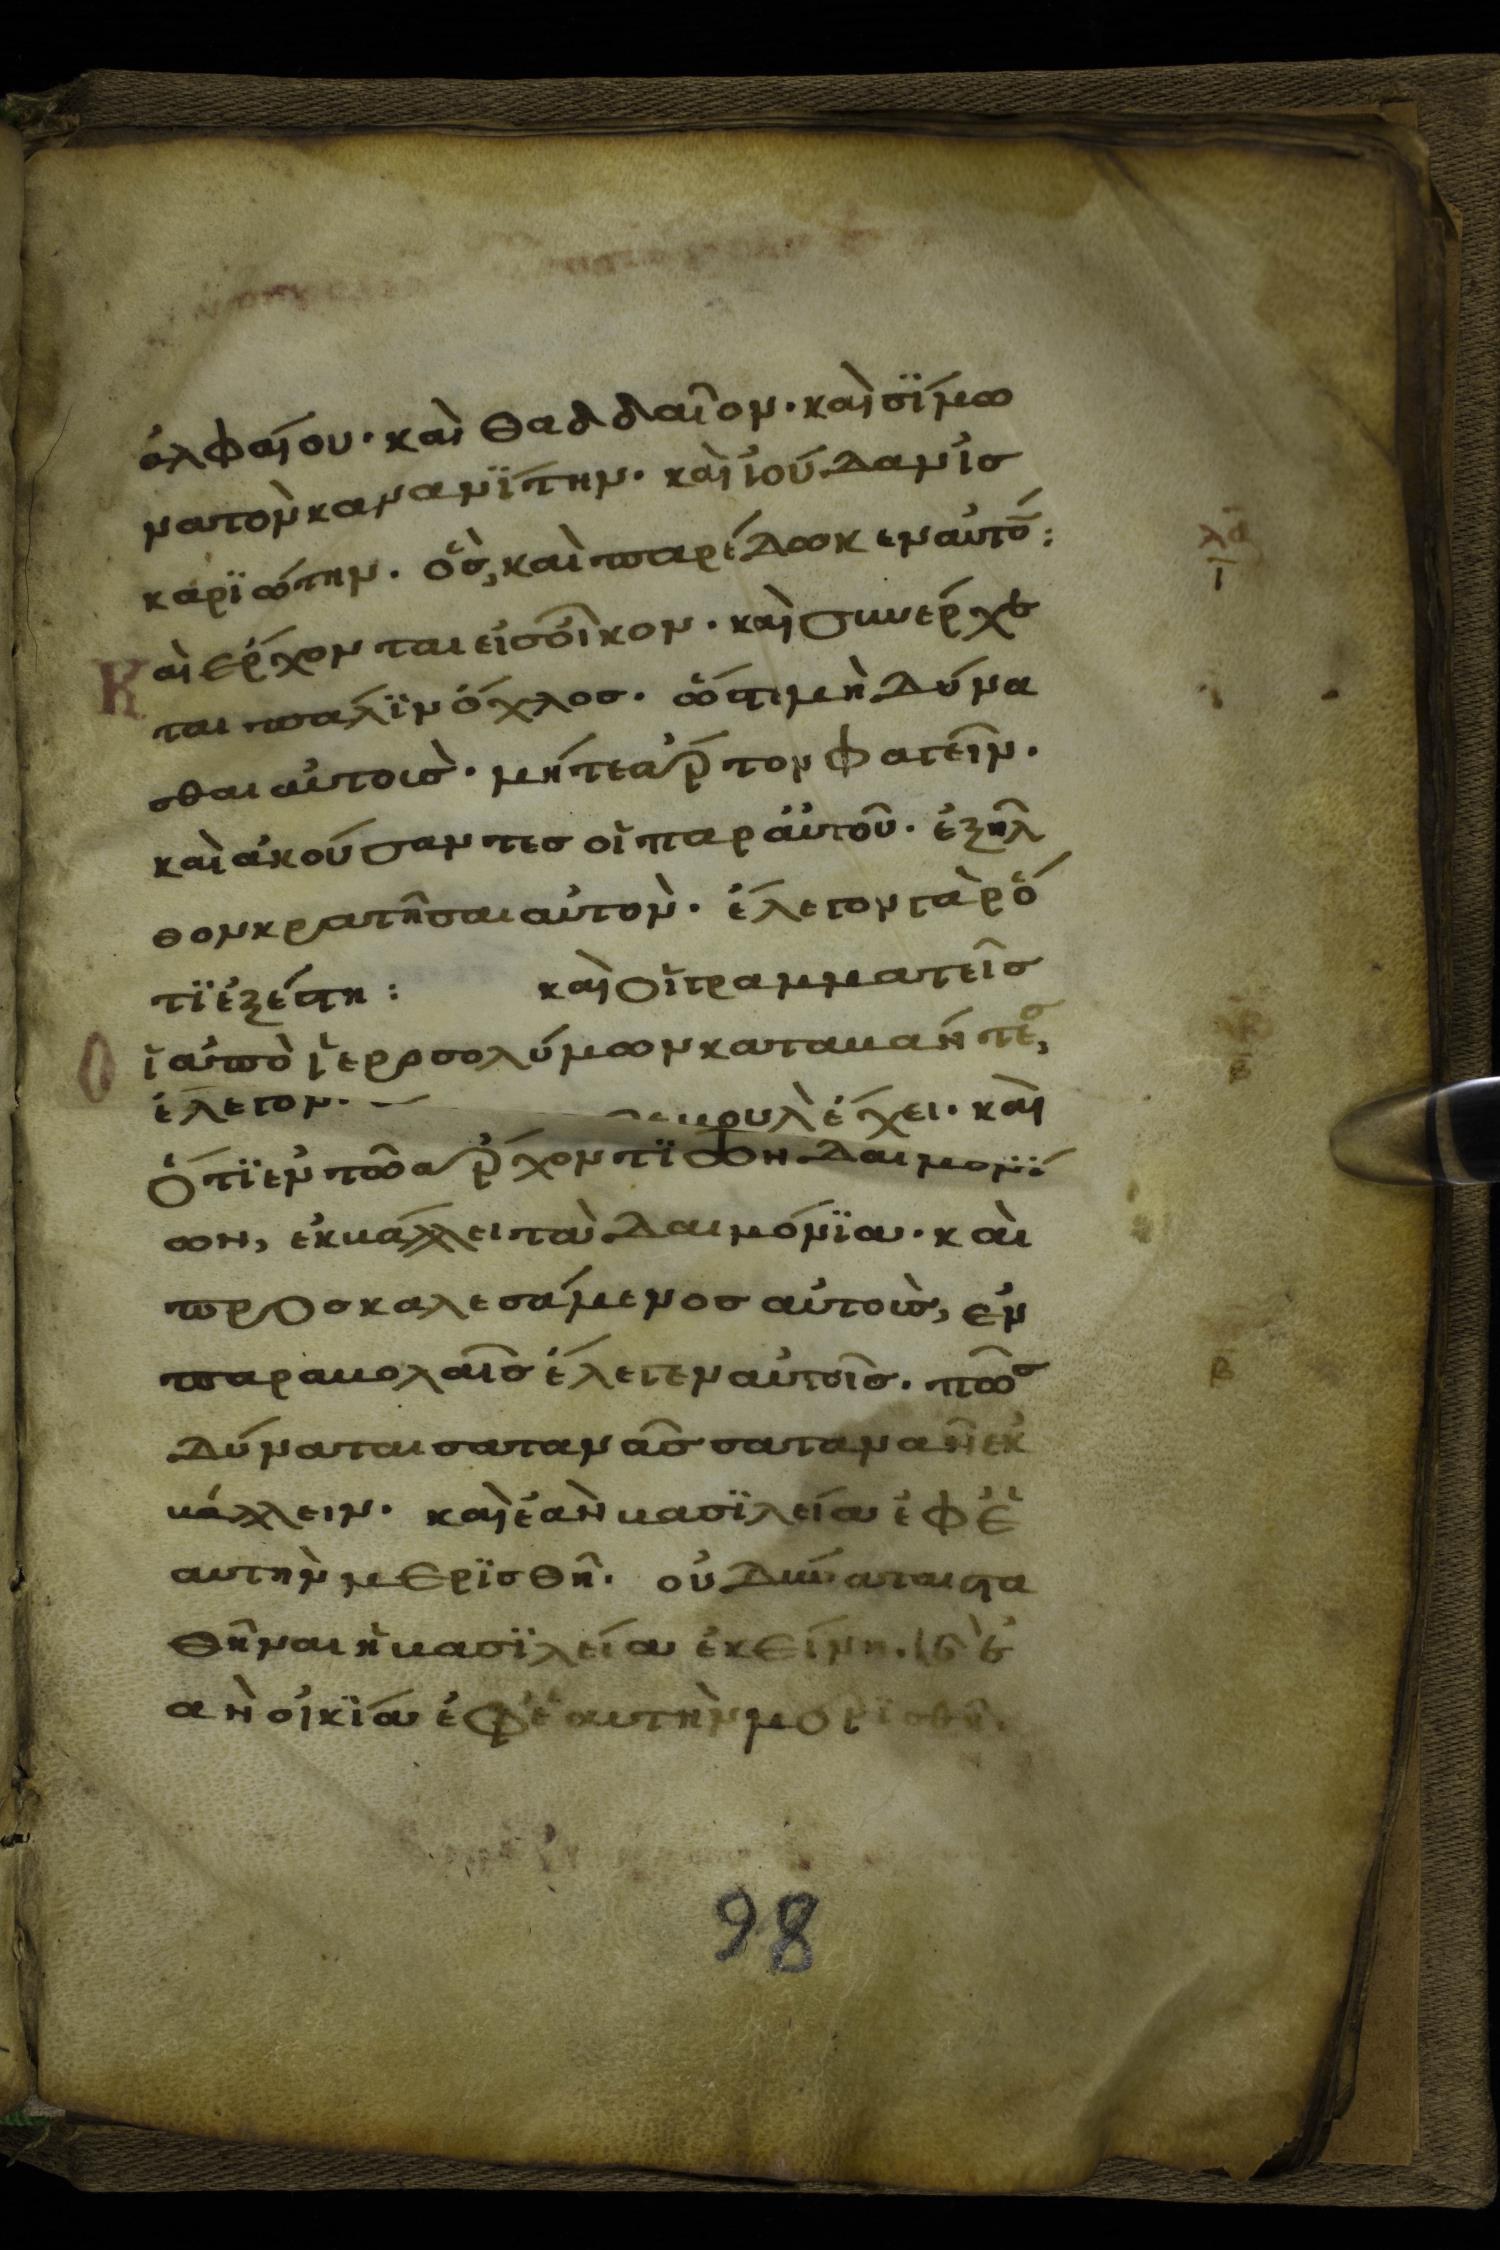 ἀλφαίου· καὶ θαδδαῖον· καὶ σΐμω
να τὸν κανανΐτην· καὶ ἰούδαν ἰσ
καρϊώτην· ὃσ, καὶ παρέδωκεν αὐτό̄:
Καὶ ἔρχονται εἰσ οἶκον· καὶ συνέρχε
ται πάλϊν ὄχλοσ· ὥστε μὴ δύνα
σθαι αὐτοὺσ· μήτε ἄρτον φαγεῖν·
καὶ ἀκούσαντεσ οἱ παρ' ἀυτοῦ· ἐξῆλ
θον κρατῆσαι αὐτὸν· ἔλεγον γὰρ ὅ
τϊ ἐξέστη: καὶ οἱ γραμματεῖσ
Ο ἱ ἀπὸ ἱεροσολύμων καταβάντεσ,
ἔλεγον· ουλ ἔχει· καὶ
ὅτϊ ἐν τῶ ἄρχοντϊ τῶν δαιμονΐ
ων, ἐκβάλλει τὰ δαιμόνϊα· καὶ
προσκαλεσάμενοσ αὐτοὺσ, ἐν
παραβολαῖσ ἔλεγεν αὐτοῖσ· πῶσ
δύναται σατανᾶσ σατανᾶν ἐκ
βάλλειν· καὶ ἐὰν βασϊλεία ἐφ' ἑ
αυτὴν μερϊσθῆ· οὐ δύναται στα
θῆναι ἡ βασϊλεία ἐκείνη· καὶ ἐ
ὰν οἰκΐα ἐφ' ἑαυτὴν μερϊσθῆ·
λα
ι
β
β
98